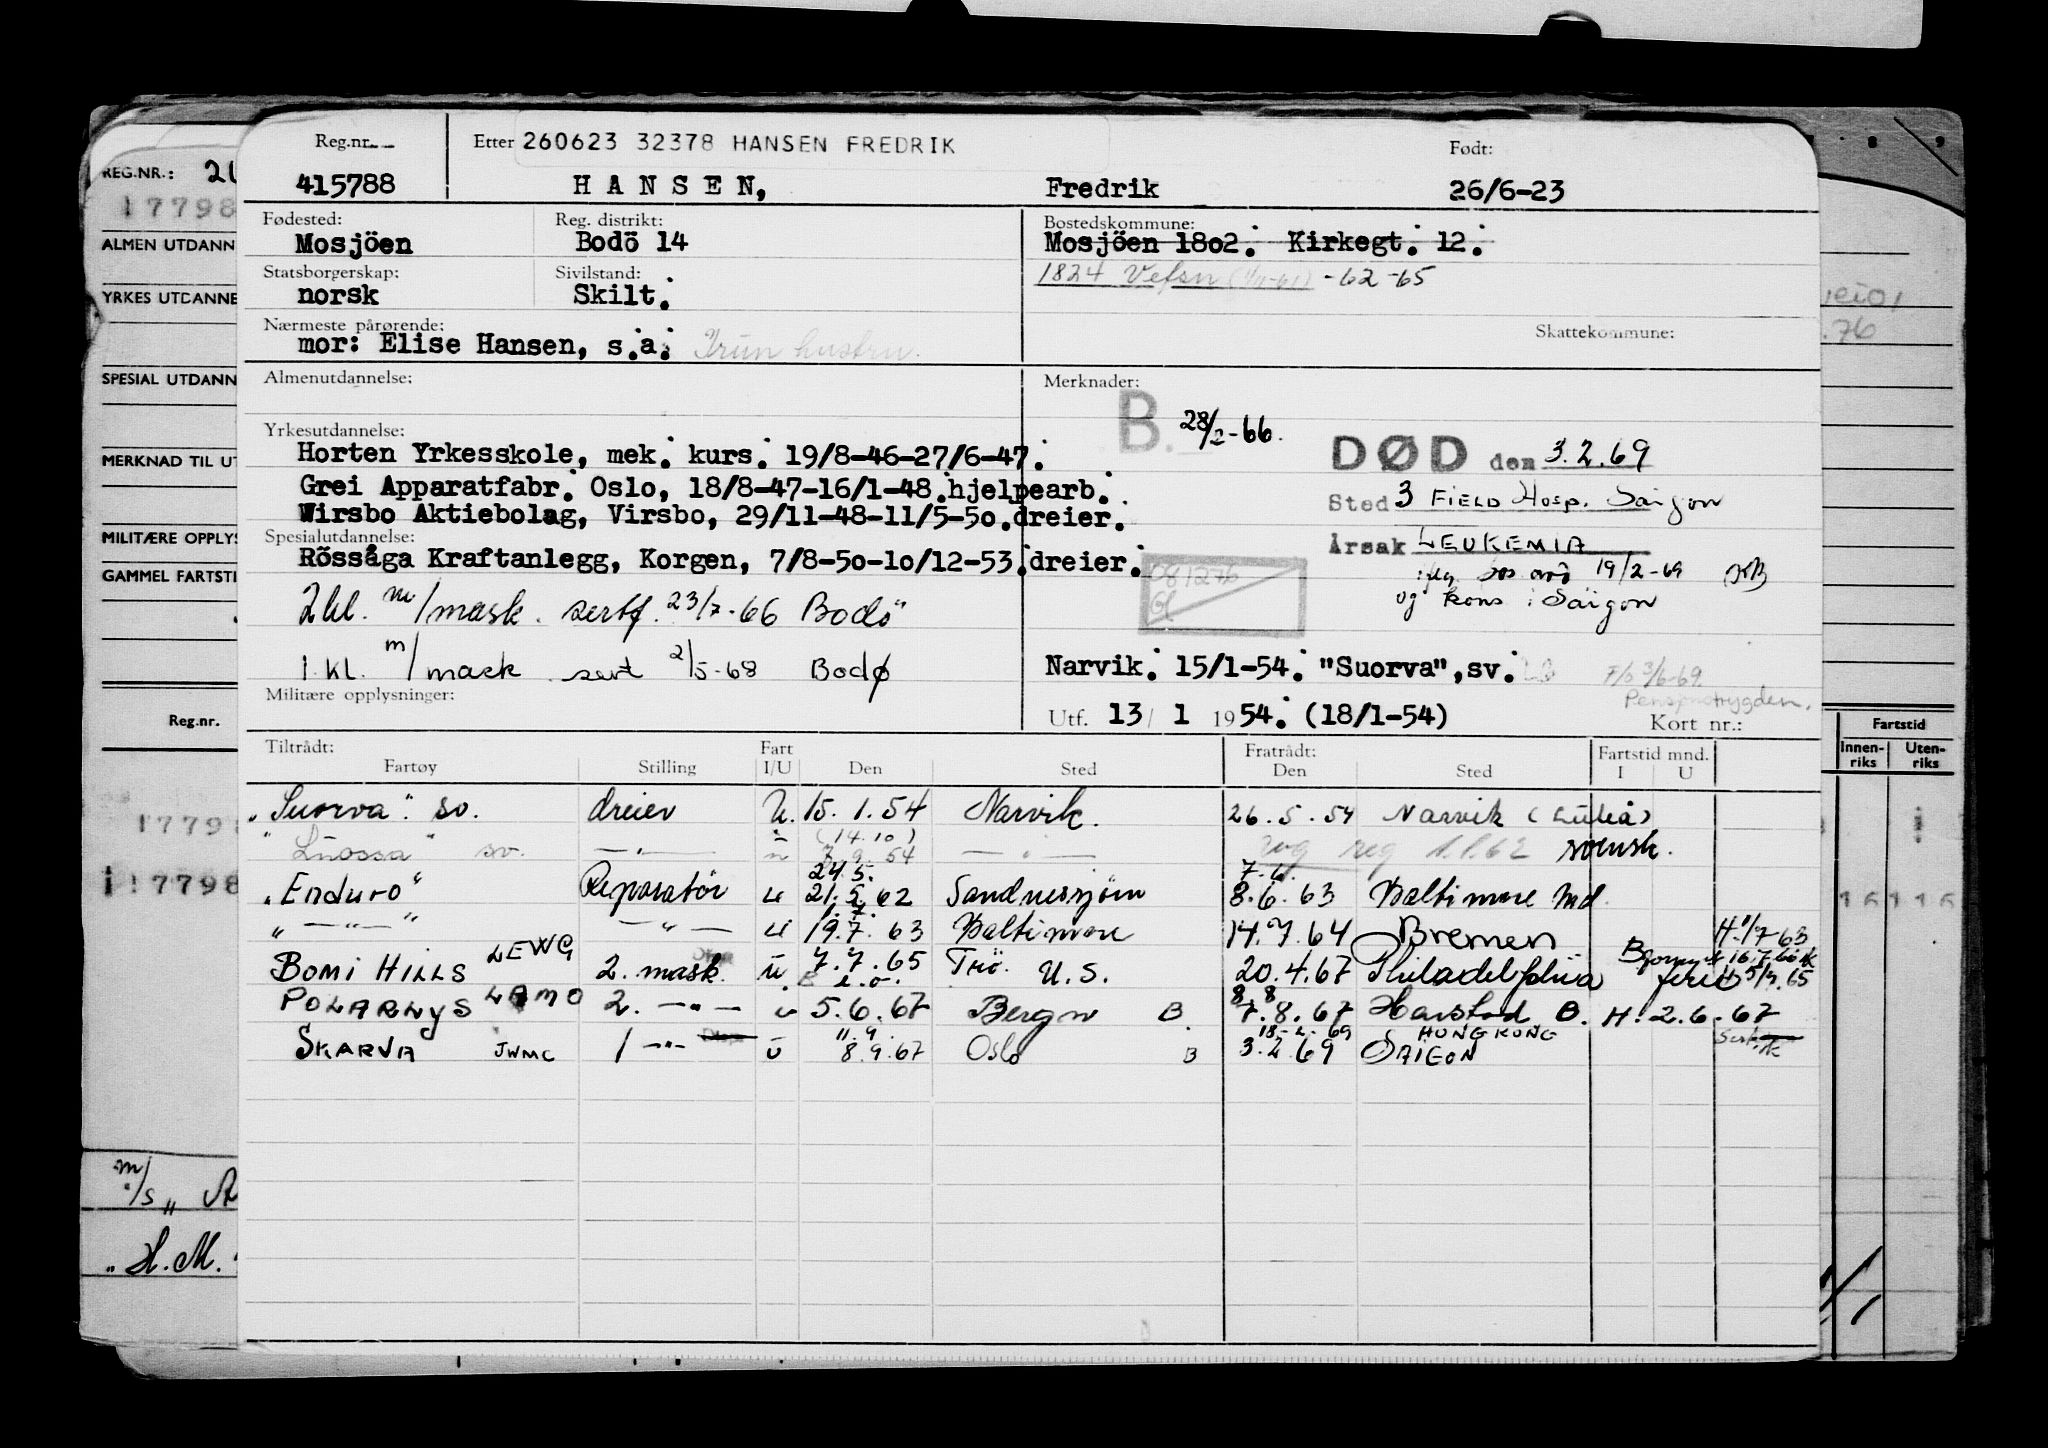 Reg.nr.
Etter 260623 32378 HANSEN FREDRIK
Født:
415788
HANSEN,
Fredrik
26/6-23
Fødested:
Reg. distrikt:
Bostedskommune:
Mosjöen
Bodö 14
Mosjöen 18o2. Kirkegt. 12.
Statsborgerskap:
Sivilstand:
1824 Vefsn -62 -65
norsk
Skilt.
Nærmeste pårørende:
Skattekommune:
mor: Elise Hansen, s.a.
hustru
Almenutdannelse:
Merknader:
B. 28/2-66.
Yrkesutdannelse:
Horten Yrkesskole, mek. kurs. 19/8-46-27/6-47.
DØD den 3.2.69
Grei Apparatfabr. Oslo, 18/8-47-16/1-48.hjelpearb.
Sted 3 FIELD HOSP. Saigon
Wirsbo Aktiebolag, Virsbo, 29/11-48-11/5-5o.dreier.
Spesialutdannelse:
Årsak LEUKEMIA
Rössåga Kraftanlegg, Korgen, 7/8-5o-1o/12-53.dreier.
19/2-69
081276
og kons i Saigon
2kl. m/mask. sertf. 23/7-66 Bodö
1. kl. m/mask sert 2/5-68 Bodø
Narvik. 15/1-54. "Suorva",sv.
3/6-69.
Pensjonstrygden.
Militære opplysninger:
Utf. 13/ 1 1954. (18/1-54)
Kort nr.:
Tiltrådt:
Fartøy
Stilling
Fart I/U
Den
Sted
Fratrådt:
Den
Sted
Fartstid mnd.
I U
"Suorva". sv. dreier U. 15.1.54 Narvik. 26.5.54 Narvik (Luleå)
"Luossa" sv. — " — (14.10) 7.9.54 — " — reg 1.1.62 svensk.
24.5. 7.6.
"Enduro" Reparatör u 21.5.62 Sandnessjöen 8.6.63 Baltimore Md.
" — " — " — " — u 19.7.63 Baltimore 14.7.64 Bremen H. 11/7 63
BOMI HILLS LEWG 2. mask. ü 7.7.65 Trö. U.S. 20.4.67 Philadelphia ferie
POLARLYS LAMO 2. — " — u 5.6.67 Bergen B 7.8.67 Harstad B. H. 2.6.67
11.9. 18-2-69 HONG KONG
SKARVA JWMC 1 — " — ü 8.9.67 Oslo B 3.2.69 SAIGON
REG.NR.:
17798
ALMEN UTDANN
YRKES UTDANNE
SPESIAL UTDANN
MERKNAD TIL UT
MILITÆRE OPPLYS
GAMMEL FARTSTI
Reg.nr.
17798
17798
m/s "
"H.M.
.76
Fartstid
Innen-riks
Uten-riks